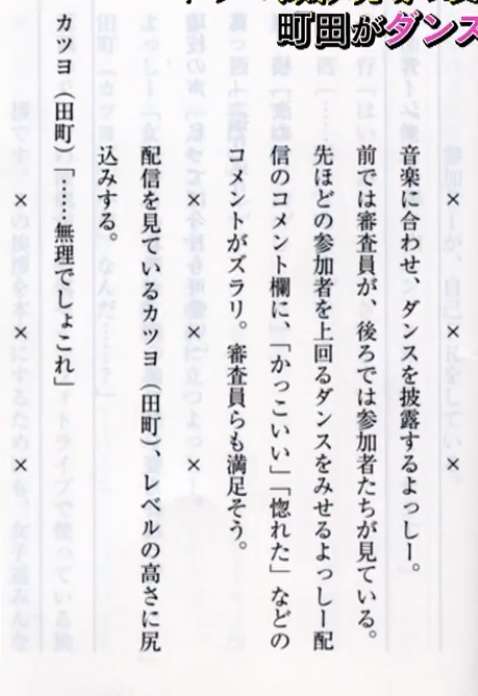 町田がダンス
× × ×
音楽に合わせ、ダンスを披露するよっしー。
前では審査員が、後ろでは参加者たちが見ている。
先ほどの参加者を上回るダンスをみせるよっしー配
信のコメント欄に、「かっこいい」「惚れた」などの
コメントがズラリ。審査員らも満足そう。
× × ×
配信を見ているカツヨ（田町）、レベルの高さに尻
込みする。
カツヨ（田町）「……無理でしょこれ」
× × ×